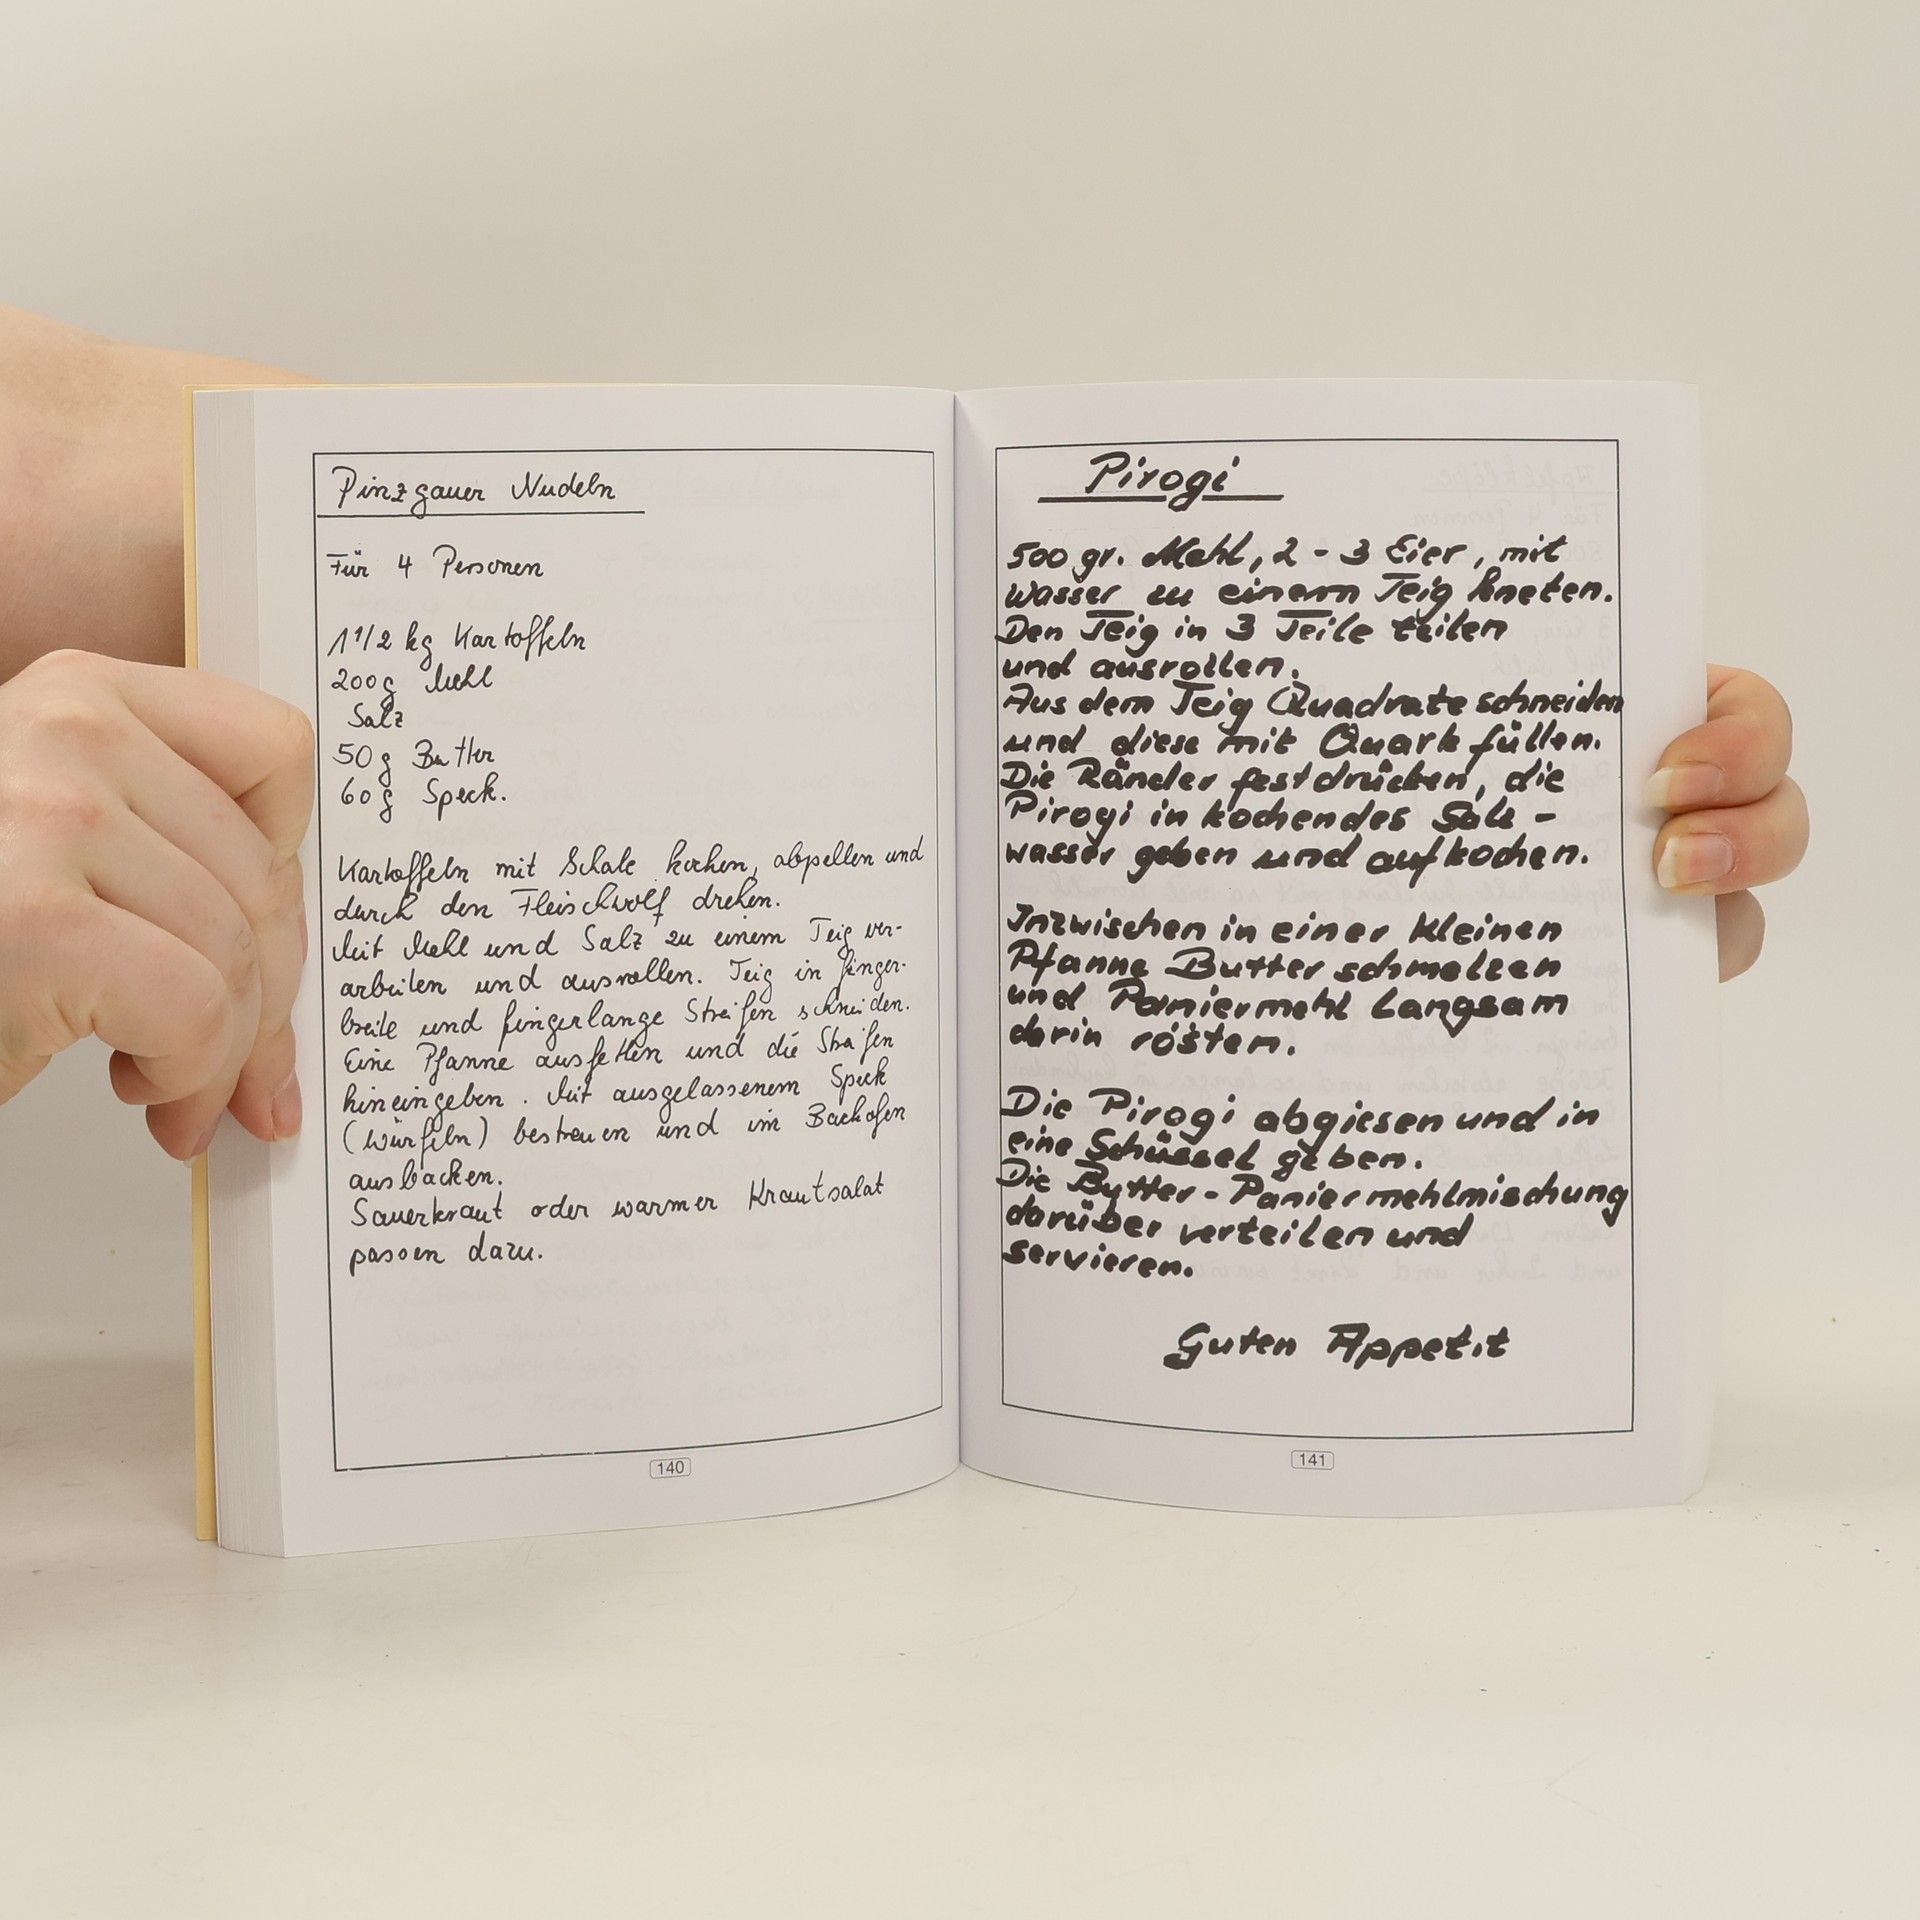 Pinzgauer Nudeln
Für 4 Personen
1 1/2 kg Kartoffeln
200g Mehl
Salz
50g Butter
60g Speck.
Kartoffeln mit Schale kochen, abpellen und
durch den Fleischwolf drehen.
Mit Mehl und Salz zu einem Teig ver-
arbeiten und ausrollen. Teig in finger-
breite und fingerlange Streifen schneiden.
Eine Pfanne ausfetten und die Streifen
hineingeben. Mit ausgelassenem Speck
(würfeln) bestreuen und im Backofen
ausbacken.
Sauerkraut oder warmer Krautsalat
passen dazu.
140
Pirogi
500 gr. Mehl, 2 - 3 Eier, mit
Wasser zu einem Teig kneten.
Den Teig in 3 Teile teilen
und ausrollen.
Aus dem Teig Quadrate schneiden
und diese mit Quark füllen.
Die Ränder festdrücken, die
Pirogi in kochendes Salz -
wasser geben und aufkochen.
Inzwischen in einer kleinen
Pfanne Butter schmelzen
und Paniermehl langsam
darin rösten.
Die Pirogi abgiesen und in
eine Schüssel geben.
Die Butter - Paniermehlmischung
darüber verteilen und
servieren.
Guten Appetit
141